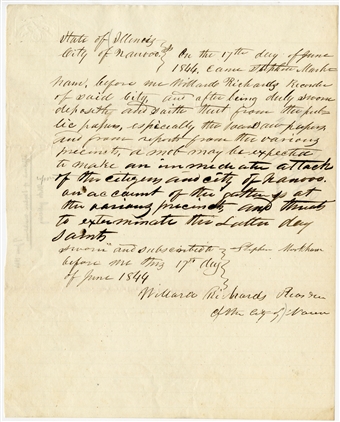 State of Illinois }
City of Nauvoo } On the 17th day of June
1844, came Stephen Mark
ham, before me Willard Richards Recorder
of said City, and after being duly sworn
deposeth and saith that from the pub
lic papers, especially the papers
and from reports from the various
precincts, a mob may be expected
to make an immediate attack
of the citizens and city of Nauvoo.
on account of the gatherings at
the various precincts and threats
to exterminate the Latter day
Saints
Sworn and subscribed } Stephen Markham
before me this 17th day }
of June 1844 }
Willard Richards Recorder
of the City of Nauvoo